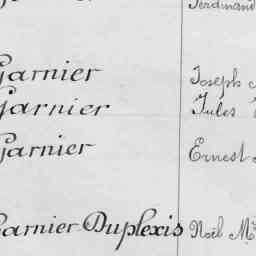 Ferdinand
Garnier Joseph
Garnier Jules
Garnier Ernest
Garnier-Duplexis Noël M